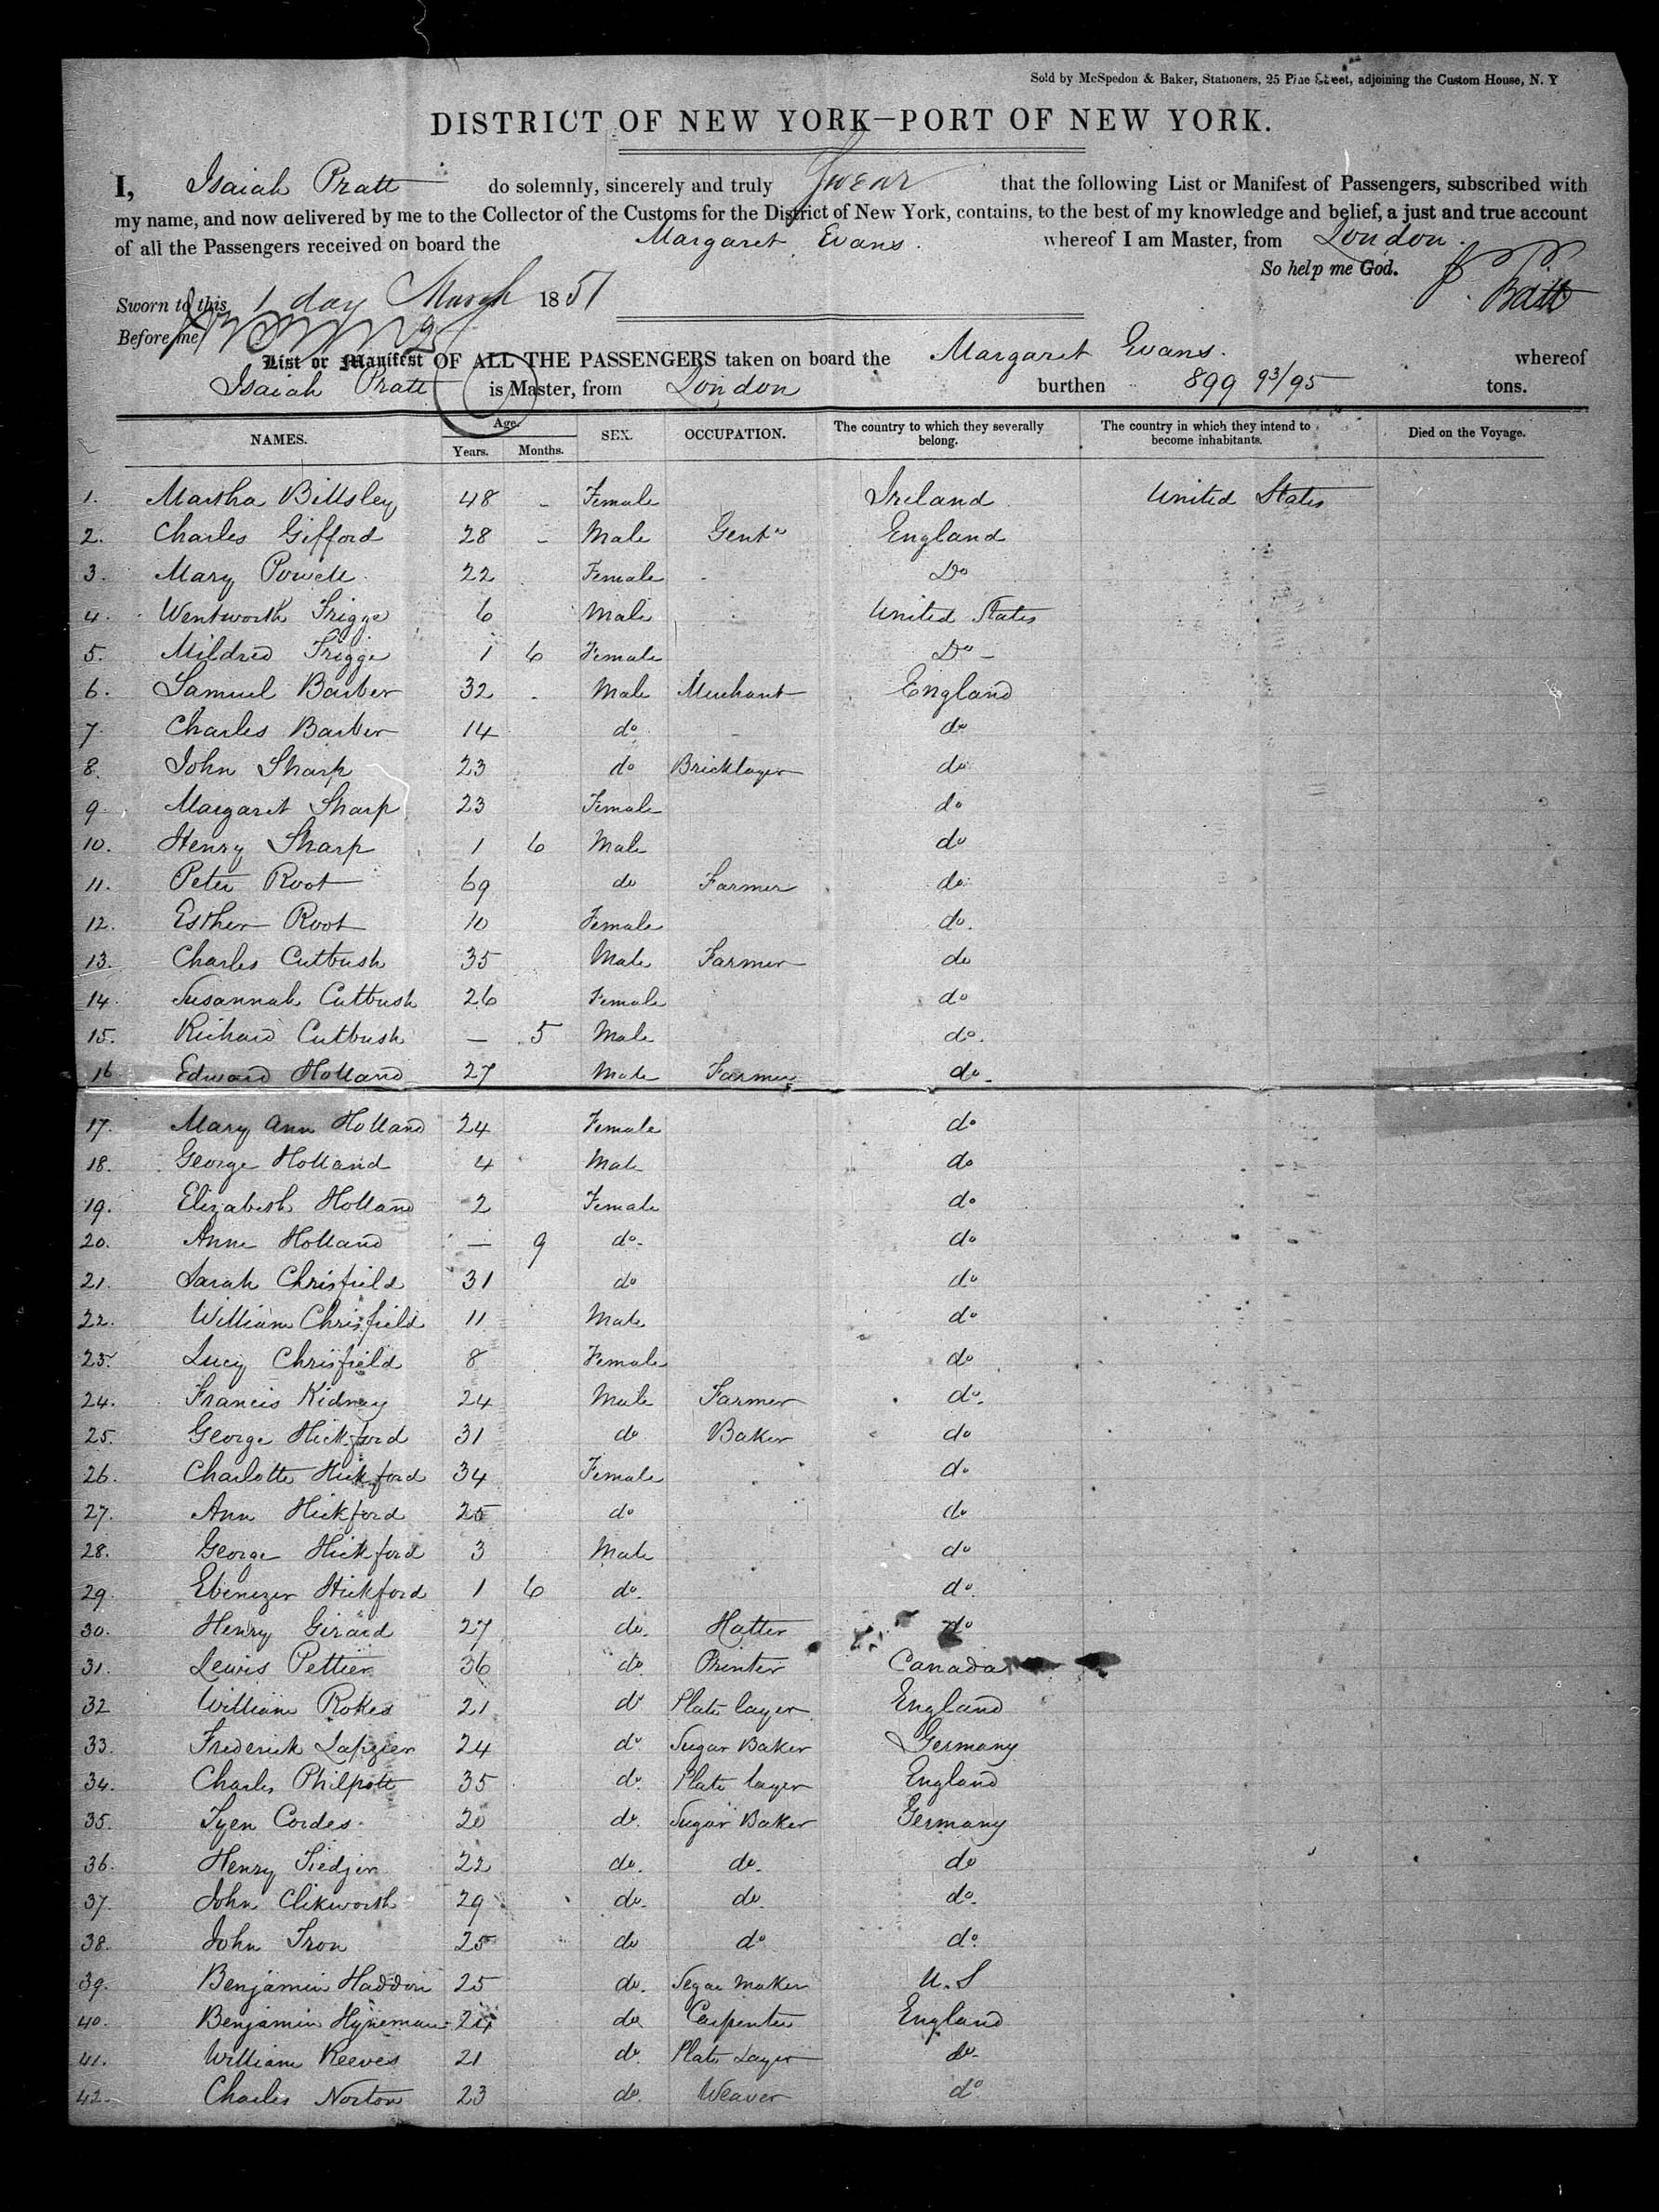 Sold by McSpedon & Baker, Stationers, 25 Pine Street, adjoining the Custom House, N. Y
DISTRICT OF NEW YORK—PORT OF NEW YORK.
I, Isaiah Pratt do solemnly, sincerely and truly Swear that the following List or Manifest of Passengers, subscribed with
my name, and now delivered by me to the Collector of the Customs for the District of New York, contains, to the best of my knowledge and belief, a just and true account
of all the Passengers received on board the Margaret Evans. whereof I am Master, from London.
So help me God. I. Pratt
Sworn to this 1 day March 1851
Before me
List or Manifest OF ALL THE PASSENGERS taken on board the Margaret Evans. whereof
Isaiah Pratt is Master, from London burthen 899 93/95 tons.
NAMES. Age. Years. Months. SEX. OCCUPATION. The country to which they severally belong. The country in which they intend to become inhabitants. Died on the Voyage.
1. Martha Billsley 48 - Female Ireland United States
2. Charles Gifford 28 - Male Gent" England
3. Mary Powell 22 Female Do
4. Wentworth Frigge 6 Male United States
5. Mildred Frigge 1 6 Female Do -
6. Samuel Barber 32 Male Merchant England
7. Charles Barber 14 do do
8. John Sharp 23 do Bricklayer do
9. Margaret Sharp 23 Female do
10. Henry Sharp 1 6 Male do
11. Peter Root 69 do Farmer do
12. Esther Root 10 Female do.
13. Charles Cutbush 35 Male Farmer do
14. Susannah Cutbush 26 Female do
15. Richard Cutbush — 5 Male do.
16 Edward Holland 27 Male Farmer do.
17. Mary Ann Holland 24 Female do
18. George Holland 4 Male do
19. Elizabeth Holland 2 Female do
20. Anne Holland — 9 do. do
21. Sarah Chrisfield 31 do do
22. William Chrisfield 11 Male do
23. Lucy Chrisfield 8 Female do
24. Francis Kidney 24 Male Farmer do.
25. George Hickford 31 do Baker do
26. Charlotte Hickford 34 Female do
27. Ann Hickford 25 do do
28. George Hickford 3 Male do
29. Ebenezer Hickford 1 6 do. do.
30. Henry Girard 27 do. Hatter do
31. Lewis Pettier 36 do Printer Canada
32 William Rokes 21 do Plate layer England
33. Frederick Lapzien 24 do Sugar Baker Germany
34. Charles Philpott 35 do. Plate layer England
35. Tyen Cordes 20 do. Sugar Baker Germany
36. Henry Tiedjen 22 do. do. do
37. John Clikworth 29 do. do. do.
38. John Tron 25 do do do.
39. Benjamin Haddon 25 do. Segar Maker U.S
40. Benjamin Hyneman 24 do Carpenter England
41. William Reeves 21 do. Plate Layer do.
42. Charles Norton 23 do. Weaver do